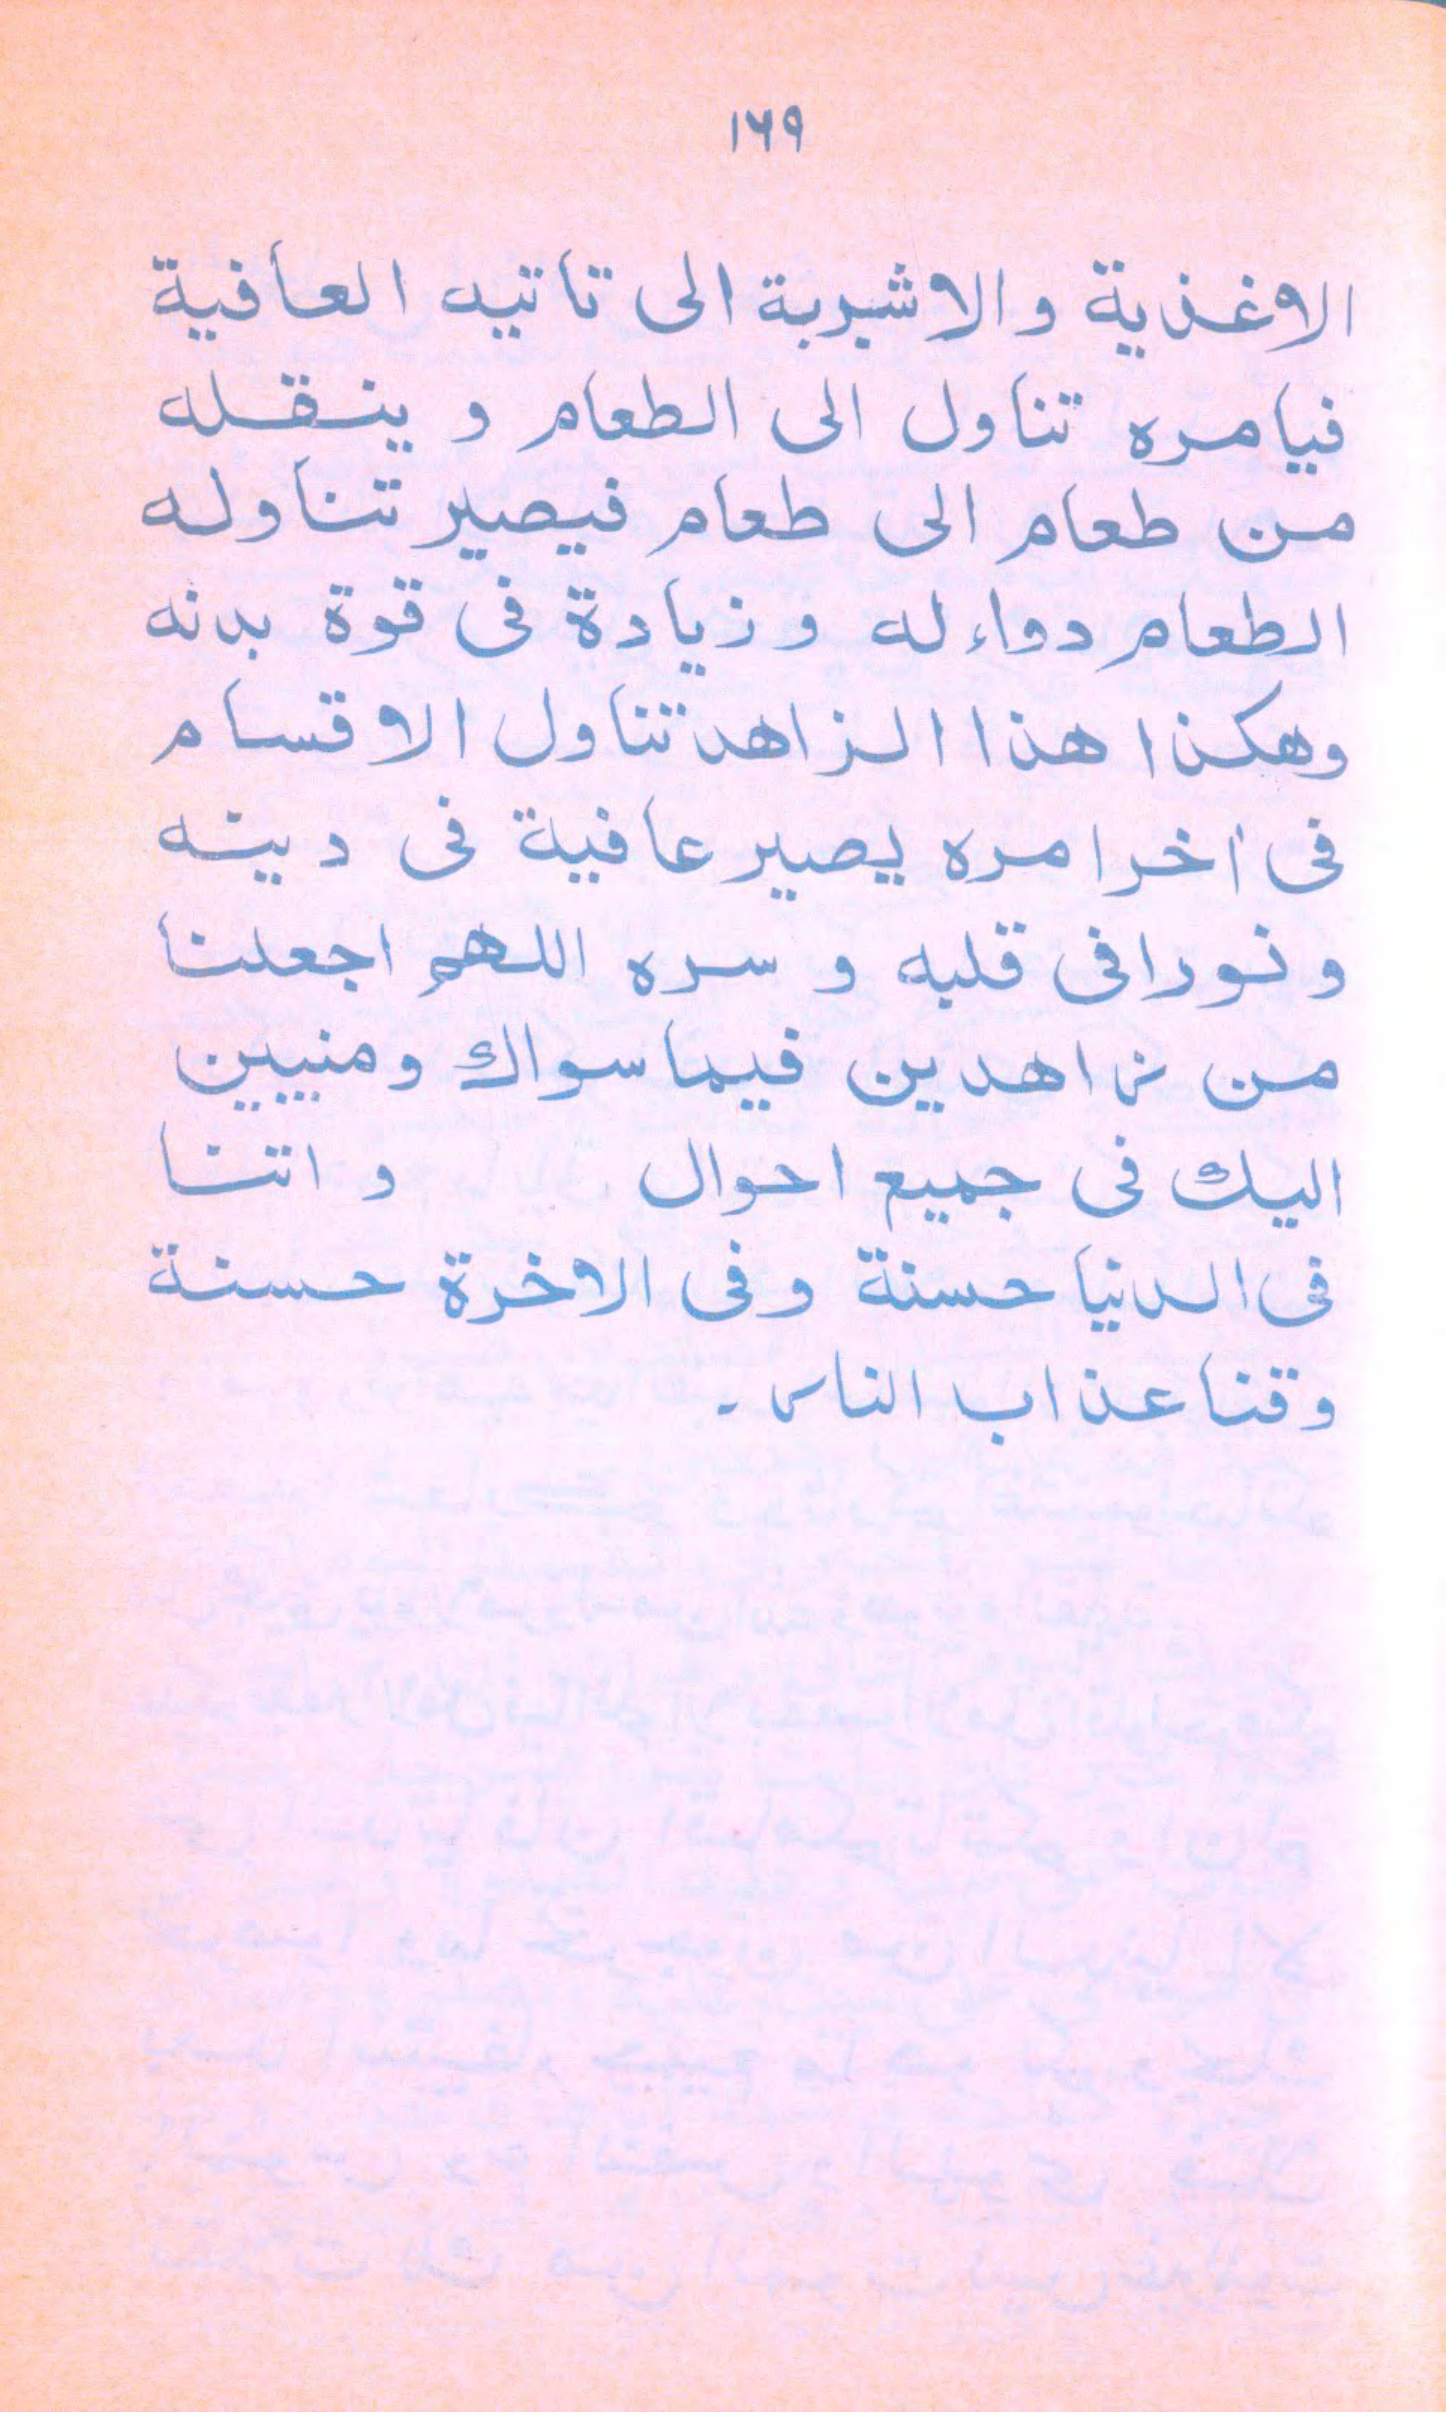 ١٦٩
الاغذية والاشربة الى تاتيه العافية
فيامره تناول الى الطعام و ينقله
من طعام الى طعام فيصير تناوله
الطعام دواء له و زيادة فى قوة بدنه
وهكذا هذا الزاهد تناول الاقسام
فى اخر امره يصير عافية فى دينه
و نورا فى قلبه و سره اللهم اجعلنا
من زاهدين فيما سواك ومنيبين
اليك فى جميع احوال و اتنا
فى الدنيا حسنة وفى الاخرة حسنة
وقنا عذاب النار۔